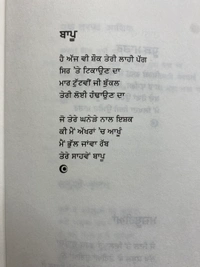 ਬਾਪੂ
ਹੈ ਅੱਜ ਵੀ ਸ਼ੌਕ ਤੇਰੀ ਲਾਹੀ ਪੱਗ
ਸਿਰ 'ਤੇ ਟਿਕਾਉਣ ਦਾ
ਮਾਰ ਟੁੱਟਵੀਂ ਜੀ ਬੁੱਕਲ
ਤੇਰੀ ਲੋਈ ਹੰਢਾਉਣ ਦਾ
ਜੋ ਤੇਰੇ ਘਨੇੜੇ ਨਾਲ ਇਸ਼ਕ
ਕੀ ਮੈਂ ਅੱਖਰਾਂ 'ਚ ਆਖੂੰ
ਮੈਂ ਭੁੱਲ ਜਾਂਵਾ ਰੱਬ
ਤੇਰੇ ਸਾਹਵੇਂ ਬਾਪੂ